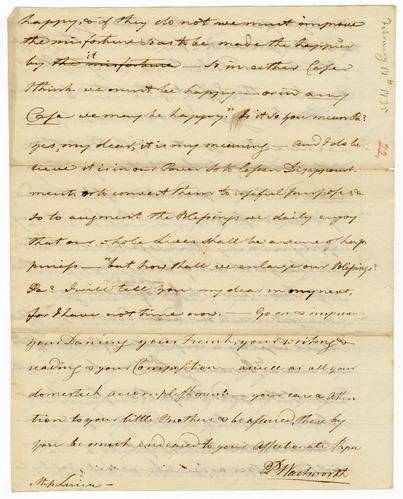 happy, & if they do not we must improve
the misfortune so as to be made the happier
by the misfortune it — So in either Case
I think we must be happy — or in any
Case we may be happy." Is it so you mean Pa?
yes, my dear, it is my meaning — and I do be
lieve it is in our Power so to lessen Disappoint
ments, or to convert them to useful purposes &
so to augment the Blessings we daily enjoy
that our whole Lives shall be a scene of hap
piness — "but how shall we enlarge our Blessings
Pa? I will tell you my dear in my next,
for I have not time now. — Go on & improve
your Dancing your french, your writing &
reading & your Composition as well as all your
domestick accomplishments — your care & Atten
tion to your little Brother & be assured, thereby
you be much endeared to your Affectionate Papa
Wadsworth
Miss
22